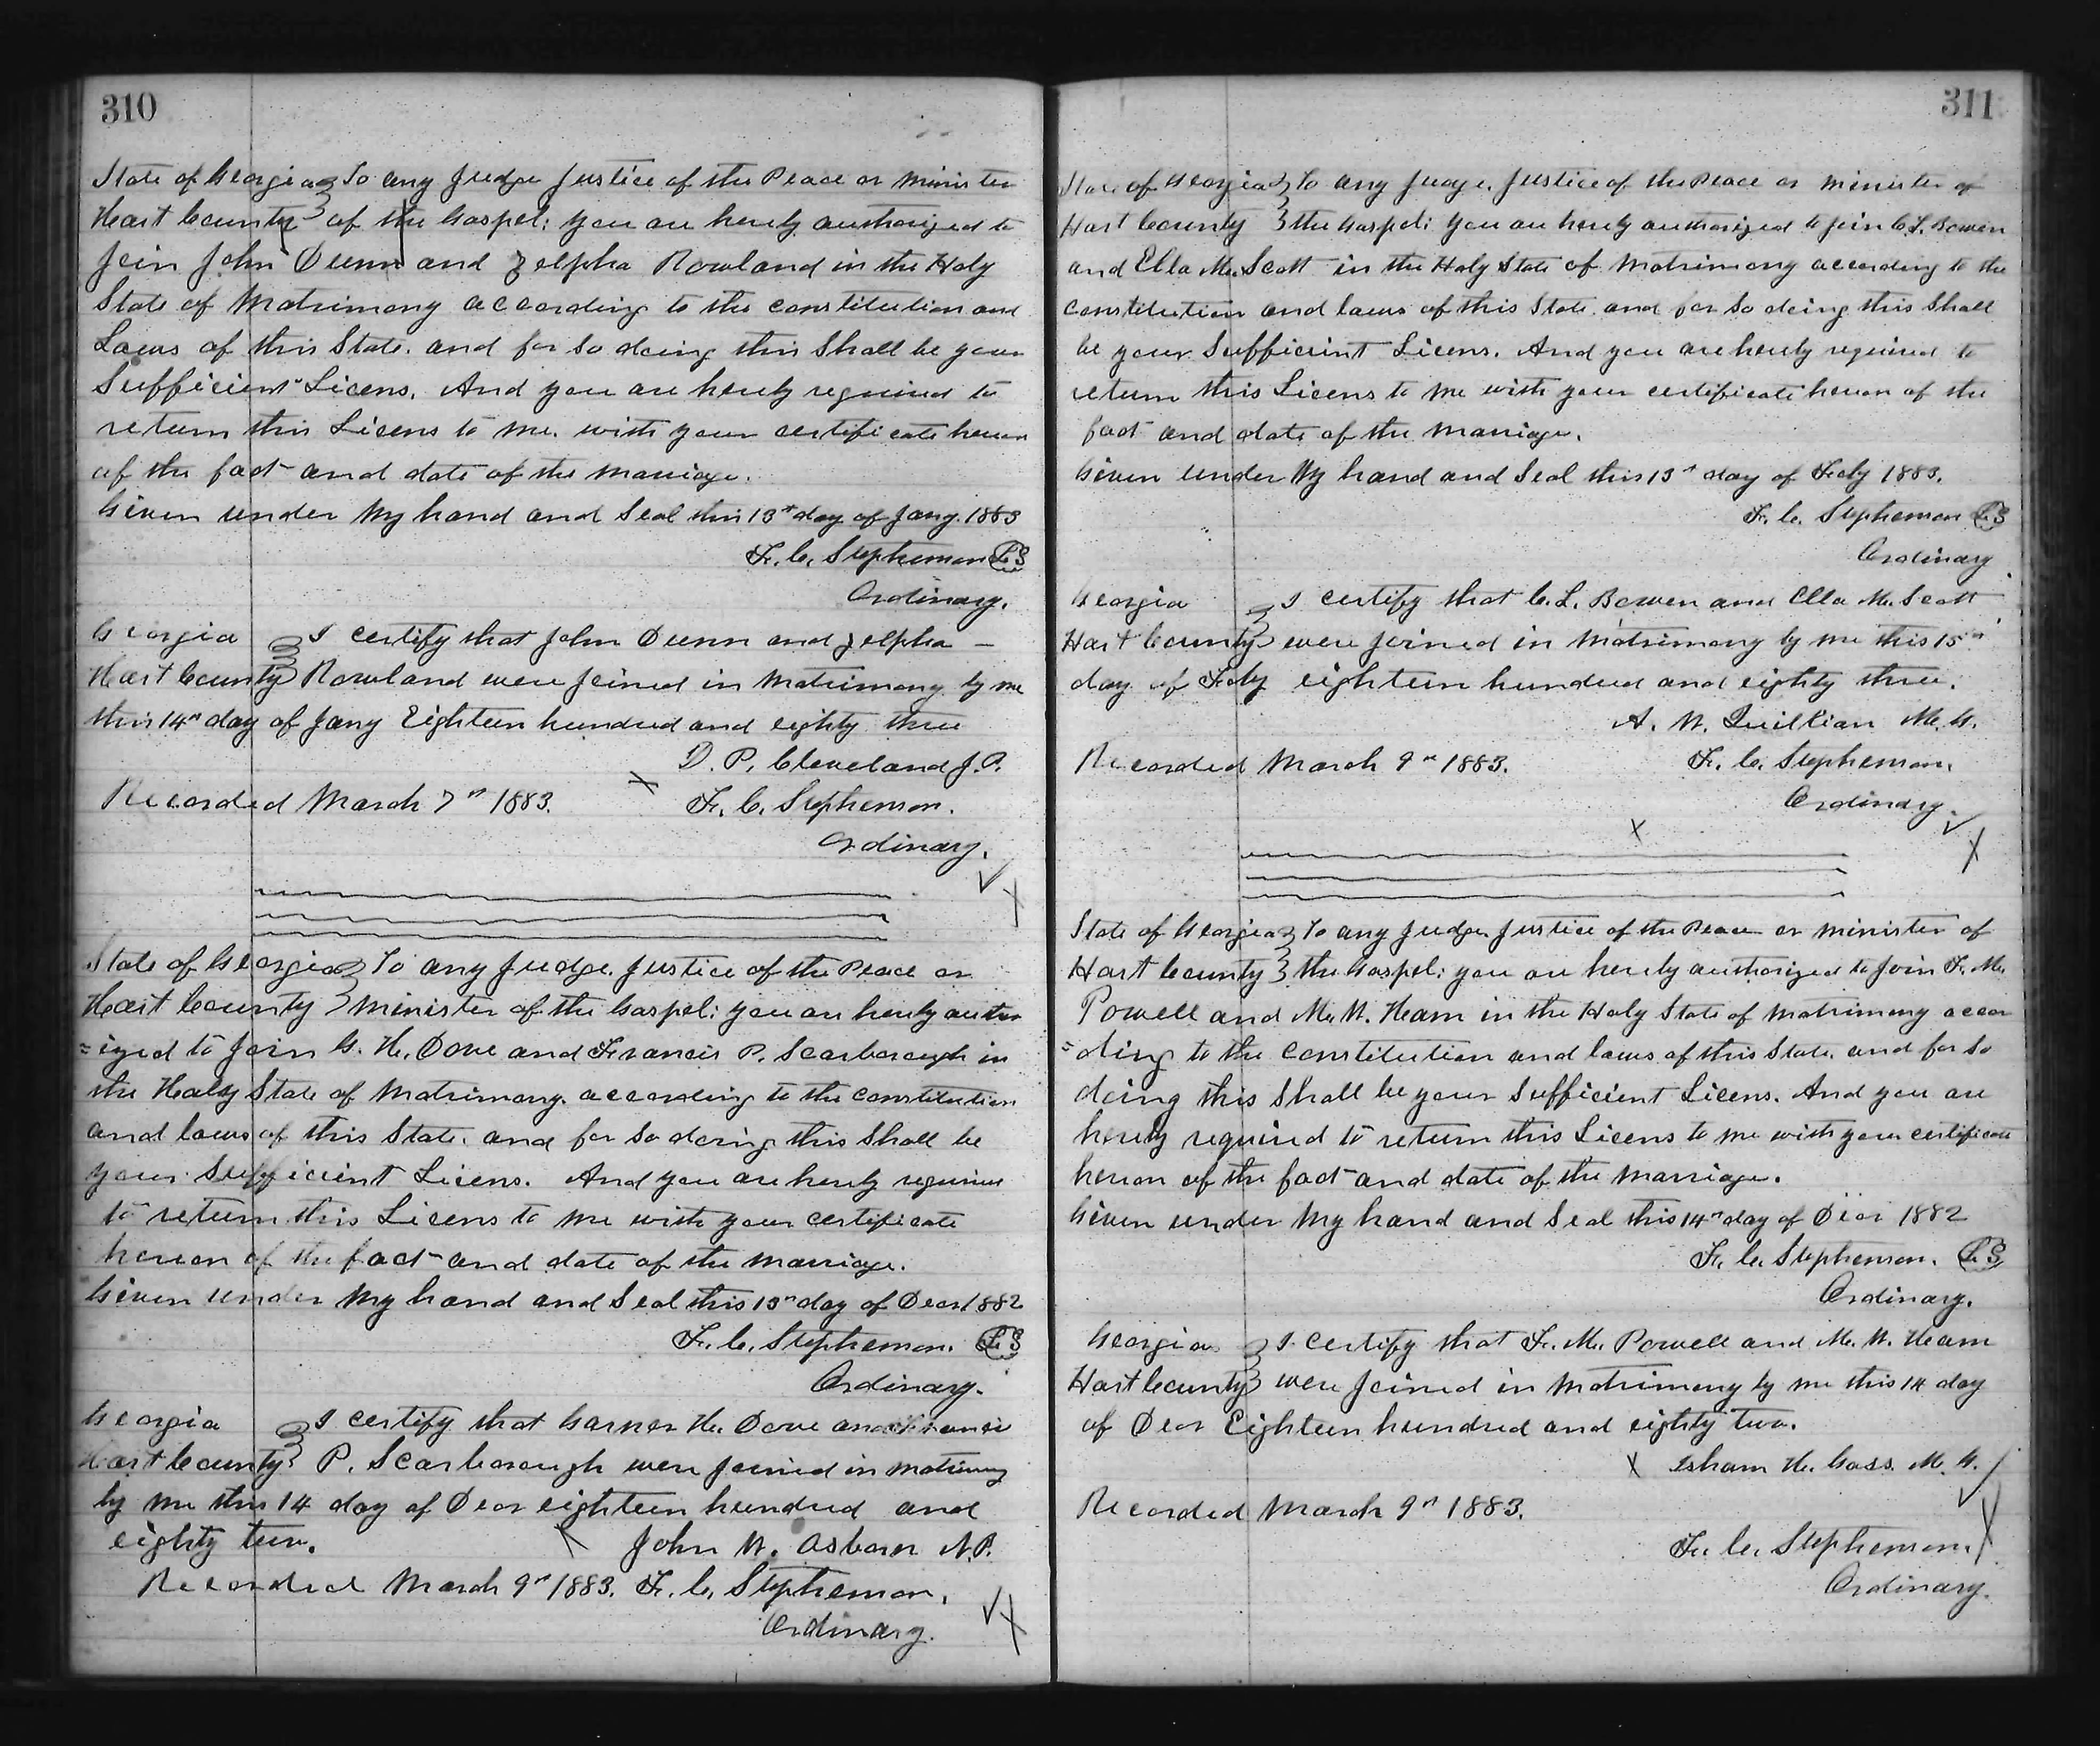 310
State of Georgia } To any Judge Justice of the Peace or minister
Hart County } of the Gospel: you are hereby authorized to
Join John Dunn and Zelpha Rowland in the Holy
State of Matrimony according to the constitution and
Laws of this State. and for so doing this Shall be your
Sufficient Licens. And you are hereby required to
return this Licens to me. with your certificate hereon
of the fact and date of the marriage.
Given under my hand and Seal this 13th day of Jany. 1883
F. C. Stephenson L S
Ordinary.
Georgia } I certify that John Dunn and Zelpha –
Hart County } Rowland were Joined in Matrimony by me
this 14th day of Jany Eighteen hundred and eighty three
D. P. Cleveland J. P.
Recorded March 7th 1883. F. C. Stephenson.
Ordinary.
State of Georgia } To any Judge. Justice of the Peace or
Hart County } minister of the Gospel: you are hereby author
=ized to Join G. H. Dove and Francis P. Scarborough in
the Holy State of Matrimony. according to the constitution
and laws of this State. and for so doing this Shall be
your Sufficient Licens. And you are hereby required
to return this Licens to me with your certificate
hereon of the fact and date of the marriage.
Given under my hand and Seal this 13th day of Decr 1882
F. C. Stephenson. L S
Ordinary.
Georgia } I certify that Garner H. Dove and Francis
Hart County } P. Scarborough were Joined in matrimony
by me this 14 day of Decr eighteen hundred and
eighty two. X John W. Osborn N.P.
Recorded March 9th 1883. F. C. Stephenson.
Ordinary.
311
State of Georgia } To any Judge. Justice of the Peace or minister of
Hart County } the Gospel: you are hereby authorized to join C. L. Bowen
and Ella M. Scott in the Holy State of Matrimony according to the
constitution and laws of this State. and for so doing this Shall
be your Sufficient Licens. And you are hereby required to
return this Licens to me with your certificate hereon of the
fact and date of the marriage.
Given under my hand and Seal this 13th day of Feby 1883.
F. C. Stephenson L S
Ordinary
Georgia } I certify that C. L. Bowen and Ella M. Scott
Hart County } were Joined in Matrimony by me this 15th
day of Feby eighteen hundred and eighty three.
A. W. Quillian M. G.
Recorded March 9th 1883. F. C. Stephenson.
Ordinary.
State of Georgia } To any Judge Justice of the Peace or minister of
Hart County } the Gospel: you are hereby authorized to Join F. M.
Powell and M. W. Heam in the Holy State of matrimony accor
=ding to the constitution and laws of this State. and for so
doing this Shall be your Sufficient Licens. And you are
hereby required to return this Licens to me with your certificate
hereon of the fact and date of the marriage.
Given under my hand and Seal this 14th day of Decr 1882
F. C. Stephenson. L S
Ordinary.
Georgia } I certify that F. M. Powell and M. W. Heam
Hart County } were Joined in Matrimony by me this 14 day
of Decr Eighteen hundred and eighty two.
X Isham H. Goss. M. G.
Recorded March 9th 1883.
F. C. Stephenson.
Ordinary.